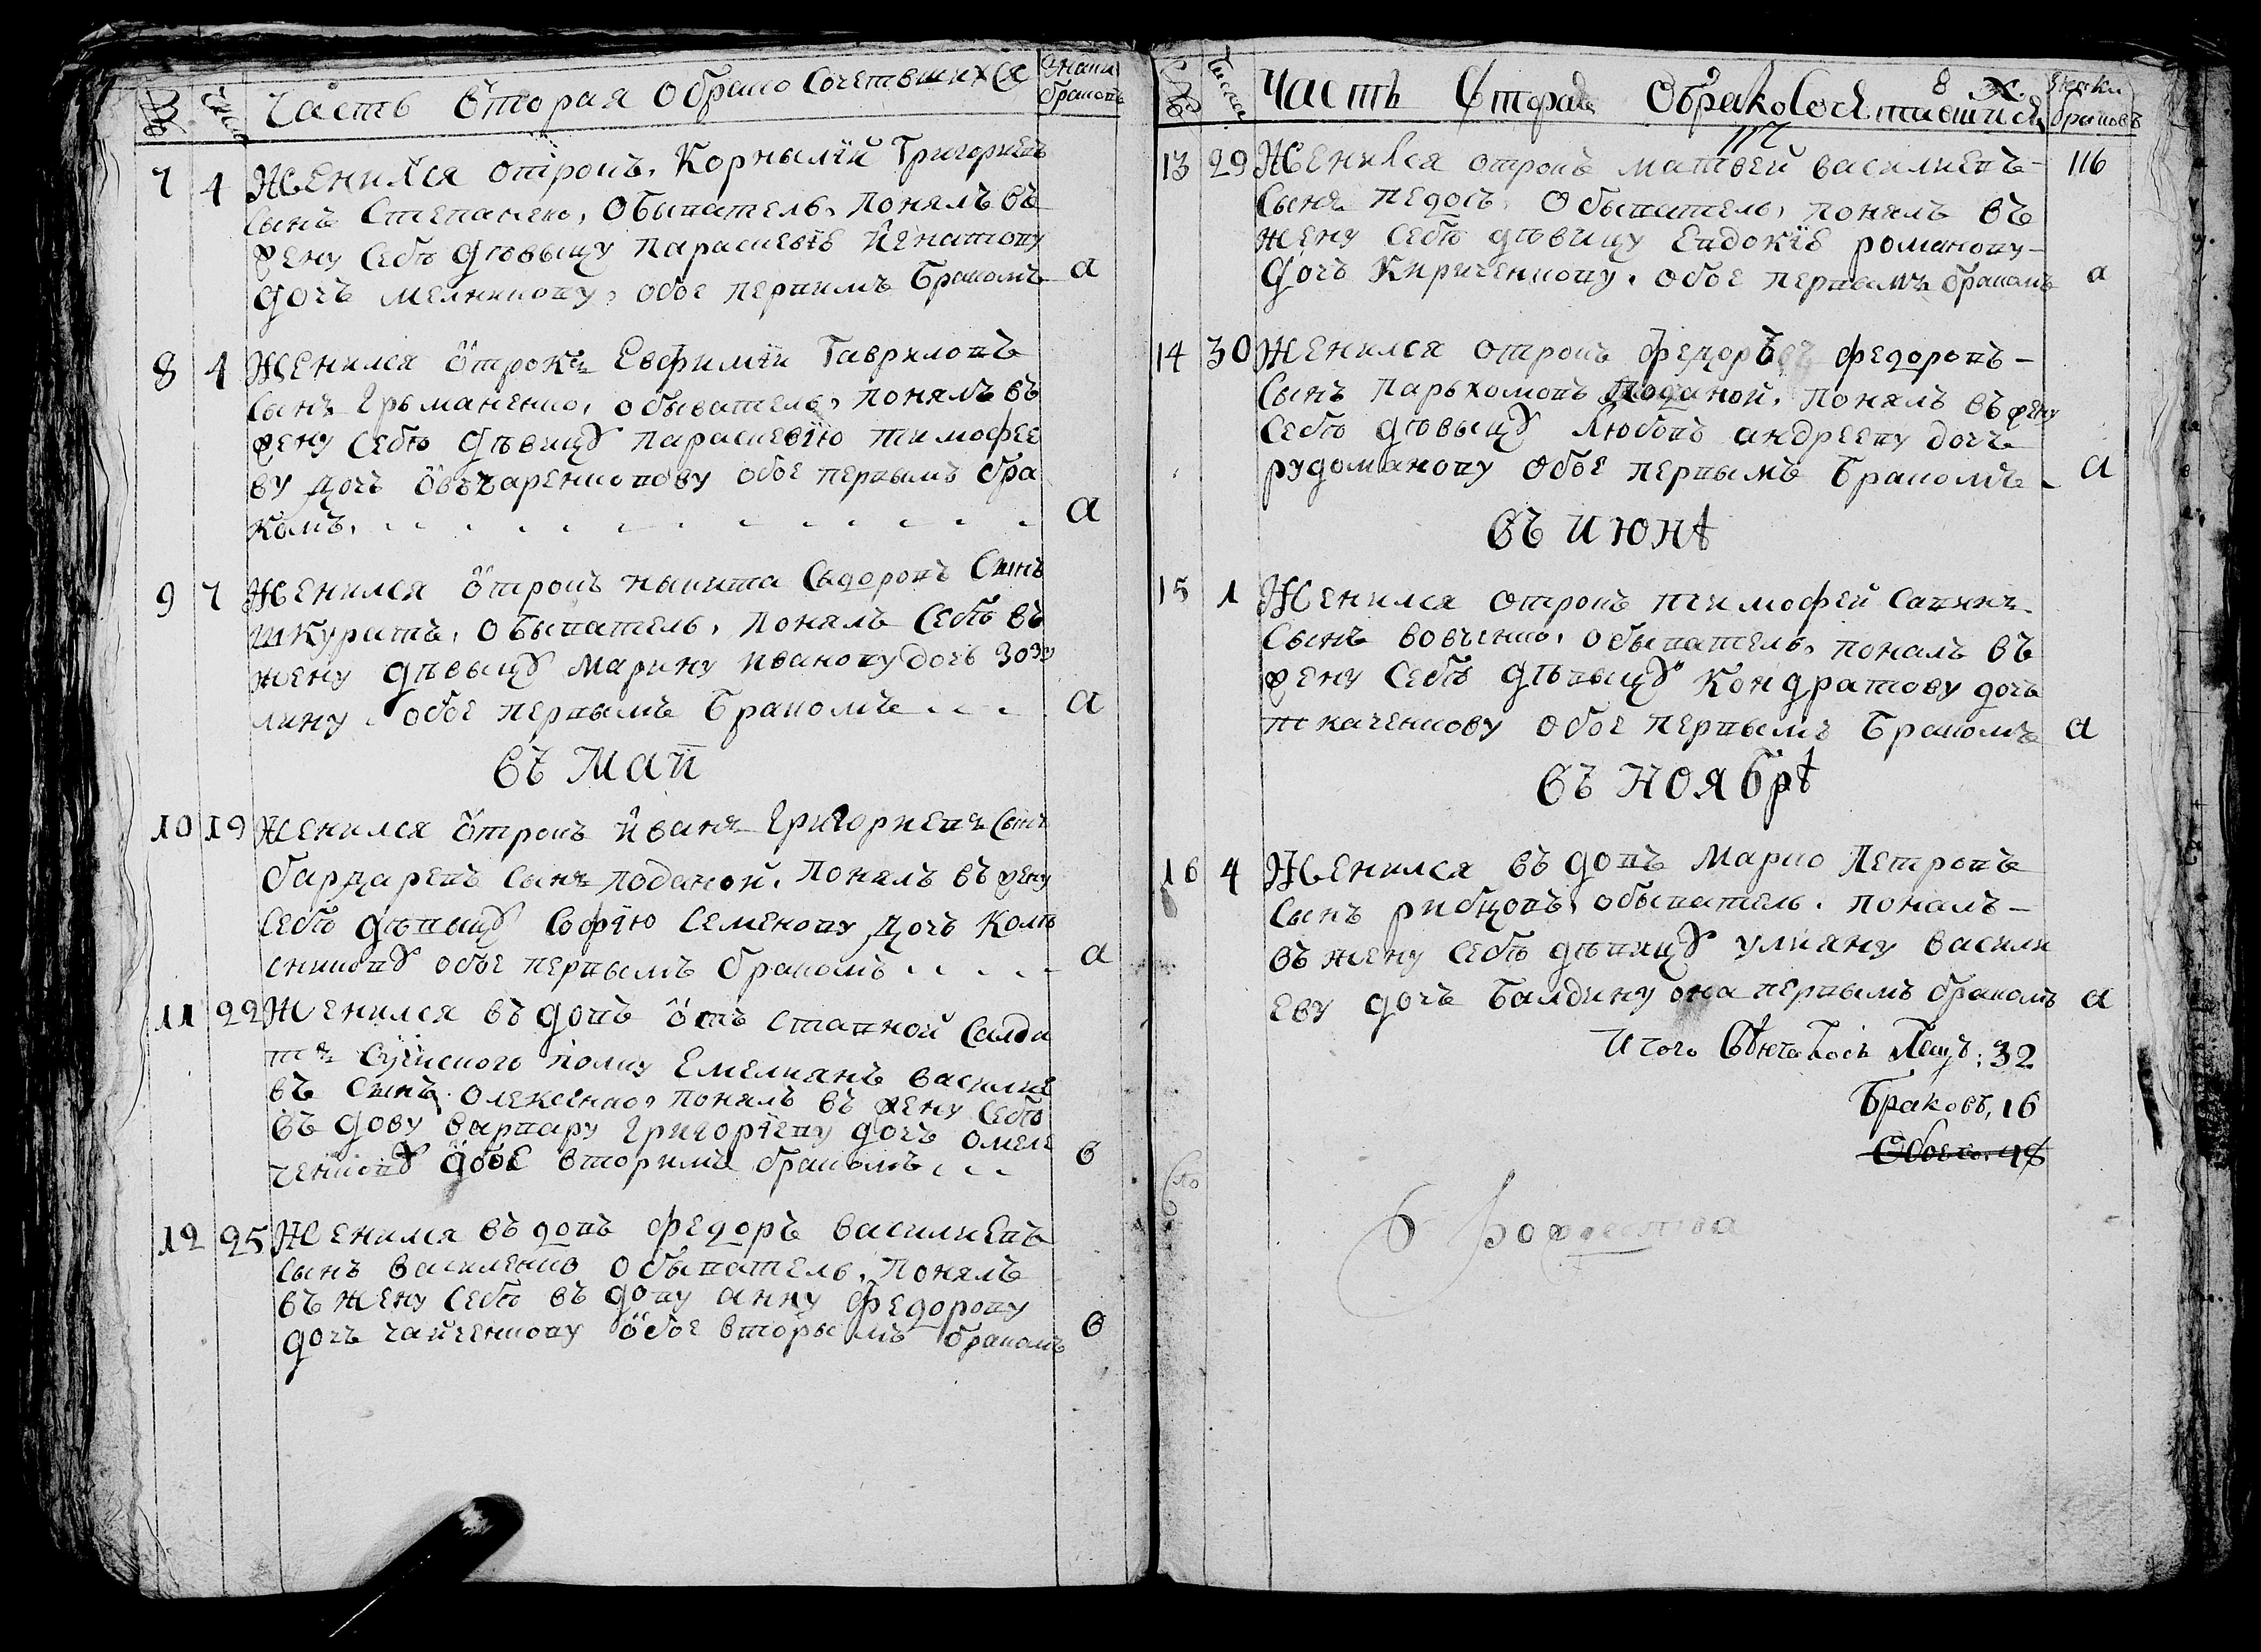 № Число Часть вторая О брако сочетавшихся Знаки браковъ
7 4 Женился отрокъ, Корнылій Григориевъ
сынъ Степаненко, Обыватель, понялъ въ
жену себѣ дѣвыцу Параскевіе Йгнатову
дочъ мелникову, обое первимъ бракомъ а
8 4 Женился ӧтрокъ Евфимій Гаврыловъ
сынъ Ерьманенко, обыватель, понялъ въ
жену себѣ дѣвицу Параскевїю тимофее
ву дочъ ӧвъчаренкопову обое первымъ бра
комъ. а
9 7 Женился ӧтрокъ Ныкита Сыдоровъ Сынъ
шкуратъ, Обыватель, понялъ себѣ въ
жену дѣвыцу Марину Иванову дочъ Зозу
лину, обое первымъ бракомъ а
въ Маи
10 19 Женился ӧтрокъ Йванъ Григориевъ Сынъ
бардаревъ сынъ поданой, понялъ въ жену
себѣ дѣвыцу Софїю Семенову дочъ Колѣ
сникову обое первымъ бракомъ а
11 22 Женился въдовъ ӧтъ ставной Салда
тъ полку Емелиянъ василие
въ сынъ Олексѣнко, понялъ въ жену себѣ
въдову варвару Григорїеву дочъ омелѣ
ченкову ӧбое вторимъ бракомъ в
12 25 Женился въдовъ Федоръ василиевъ
сынъ василенко обыватель, понялъ
въ жену себѣ въдову анну Федорову
дочъ чайченкову ӧбое вторымъ бракомъ в
№ Число Часть Вторая О бракосочѣтавшихся Знаки браковъ
8
13 29 Женился отрокъ матвей василиевъ 116
сынъ Педосъ, Обыватель, понялъ въ
жену себѣ дѣвицу Евдокїе романову
дочъ Кириченкову, обое первымъ бракомъ а
14 30 Женился отрокъ федоръ федоровъ
сынъ Парьхомовъ Поданой, понялъ въ жену
себѣ дѣвыцу Любовъ андрееву дочъ
рудоманову обое первымъ бракомъ а
въ июнѣ
15 1 Женился отрокъ тимофей Савинъ
сынъ вовъченко, обыватель, понялъ въ
жену себѣ дѣвыцу Кондратову дочъ
ткаченкову обое первымъ бракомъ а
въ Ноябрѣ
16 4 Женился въдовъ Марко Петровъ
сынъ рибцовъ, обыватель, понялъ
въ жену себѣ дѣвицу улияну васили
еву дочъ балдину она первымъ бракомъ а
Итого Сочеталось Лицъ: 32
Браковъ, 16
Обоего. 48